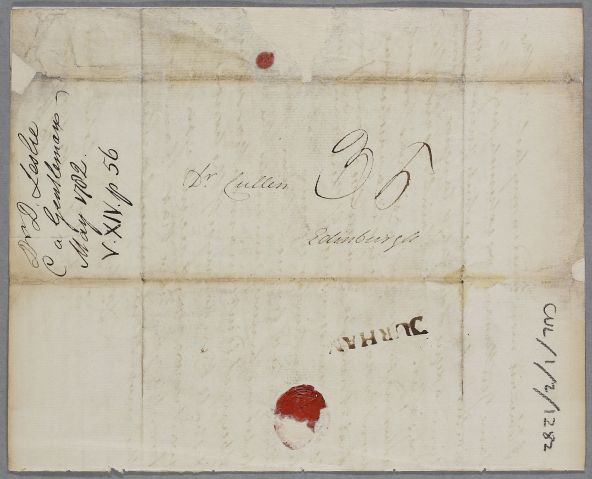 Dr. D. Leslie
(a Gentleman)
May 1782.
V. XIV. p 56
Dr. Cullen
36
Edinburgh
DURHAM
CUL/1/2/1282